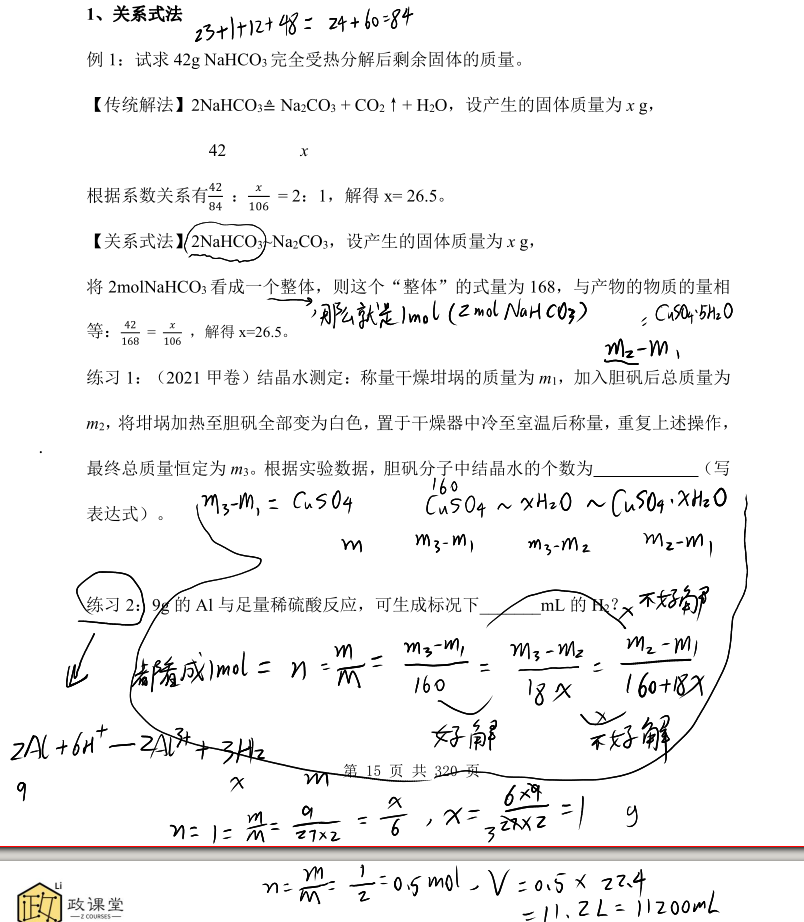 1、关系式法
23+1+12+48= 24+60=84
例 1：试求 42g NaHCO₃ 完全受热分解后剩余固体的质量。
【传统解法】2NaHCO₃≜ Na₂CO₃ + CO₂↑+ H₂O，设产生的固体质量为 x g，
42 x
根据系数关系有42/84 ：x/106 = 2：1，解得 x= 26.5。
【关系式法】2NaHCO₃~Na₂CO₃，设产生的固体质量为 x g，
将 2molNaHCO₃ 看成一个整体，则这个“整体”的式量为 168，与产物的物质的量相
，那么就是1mol（2mol NaHCO3） = CuSO4·5H2O
等：42/168 = x/106 ，解得 x=26.5。
m2-m1
练习 1：（2021 甲卷）结晶水测定：称量干燥坩埚的质量为 m₁，加入胆矾后总质量为
m₂，将坩埚加热至胆矾全部变为白色，置于干燥器中冷至室温后称量，重复上述操作，
最终总质量恒定为 m₃。根据实验数据，胆矾分子中结晶水的个数为____________（写
160
表达式）。 m3-m1 = CuSO4 CuSO4 ~ xH2O ~ CuSO4·xH2O
m m3-m1 m3-m2 m2-m1
练习 2：9g 的 Al 与足量稀硫酸反应，可生成标况下_______mL 的 H₂？ x 不好解
都看成1mol = n = m/M = (m3-m1)/160 = (m3-m2)/18x = (m2-m1)/(160+18x)
好解 x 不好解
2Al+6H⁺—2Al³⁺+3H2
第 15 页 共 320 页
9 x m
n= 1= m/M = 9/(27×2) = x/6 , x= (6×9)/(27×2) =1 g
3
n= m/M = 1/2 =0.5mol、V=0.5×22.4
=11.2L=11200mL
Li
政
政课堂
Z COURSES